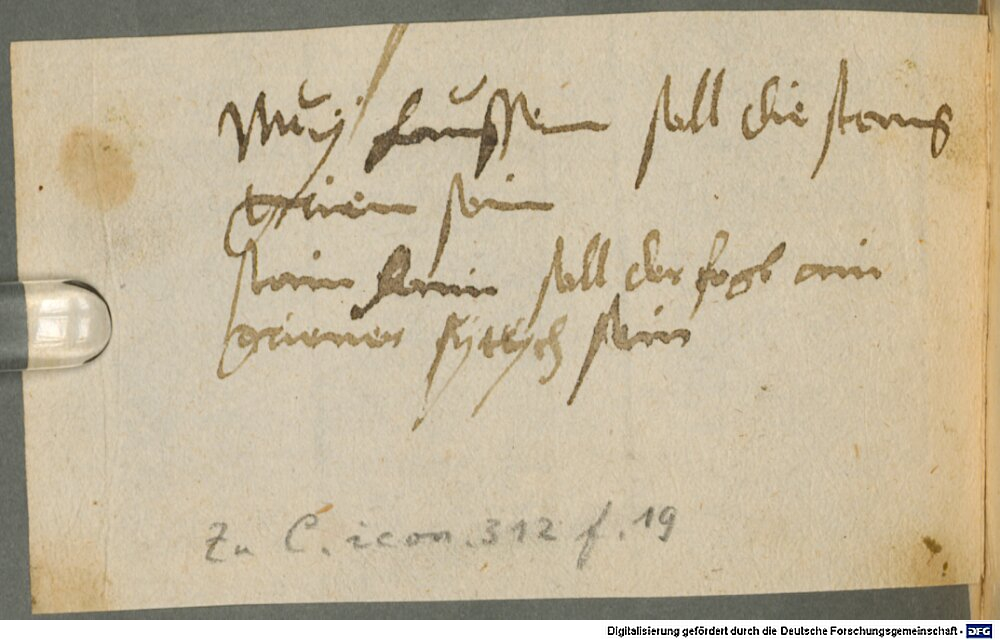 soll die stang
grien sein
stain soll der fogl ain
griener sytkych sein
Zu C. icon. 312 f. 19
Digitalisierung gefördert durch die Deutsche Forschungsgemeinschaft - DFG